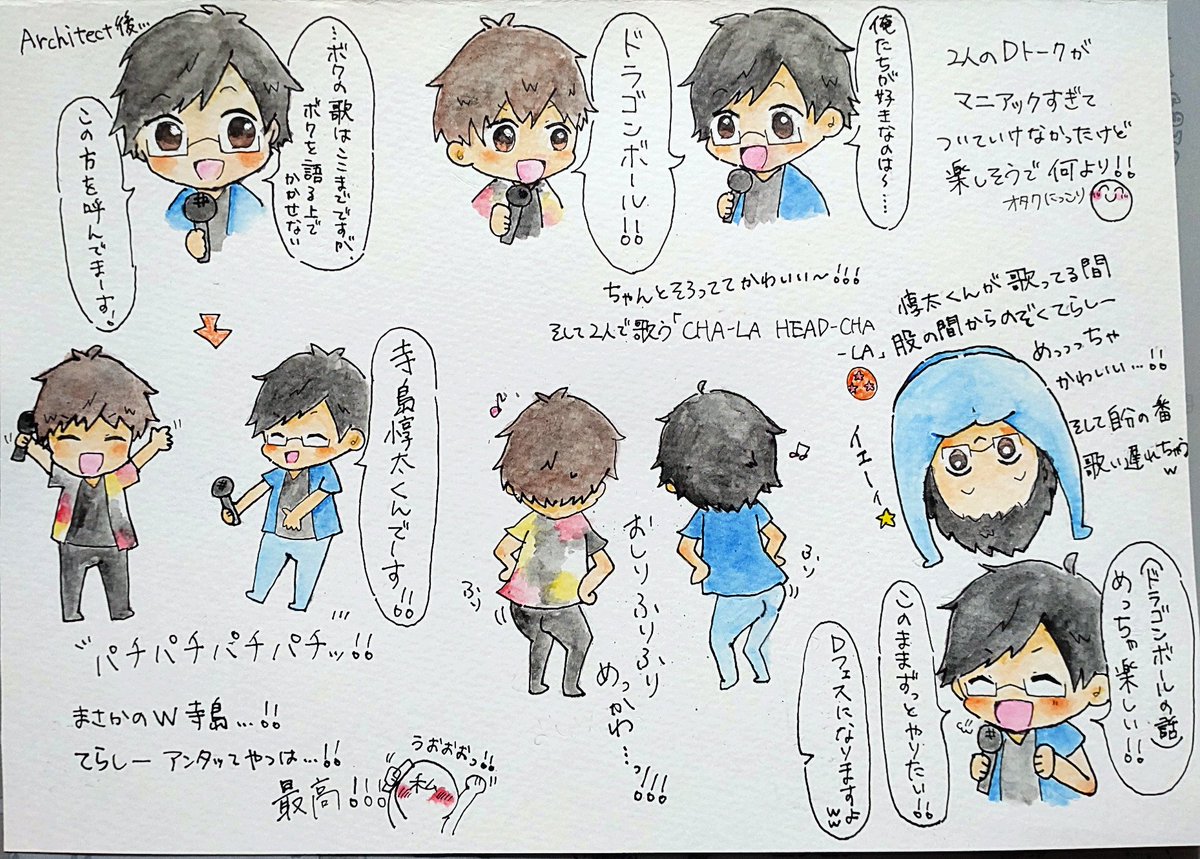 Architect後…
…ボクの歌はここまでですが、
ボクを語る上で
かかせない
この方を呼んでまーす!
俺たちが好きなのは〜…
ドラゴンボール!!
2人のDトークが
マニアックすぎて
ついていけなかったけど
楽しそうで何より!!
オタクにっこり
ちゃんとそろっててかわいい〜!!!
そして2人で歌う「CHA-LA HEAD-CHA
-LA」
寺島惇太くんでーす!!
パチパチパチパチッ!!
まさかのW寺島…!!
てらしーアンタってやつは…!!
最高!!!
うおおおっ!!
私
おしりふりふり
めっかわ…っ!!!
ふり
ふり
惇太くんが歌ってる間
股の間からのぞくてらしー
めっっっちゃ
かわいい…!!
イエーイ
そして自分の番
歌い遅れちゃう
w
(ドラゴンボールの話)
めっちゃ楽しい!!
このままずっとやりたい!!
Dフェスになりますよ
ww